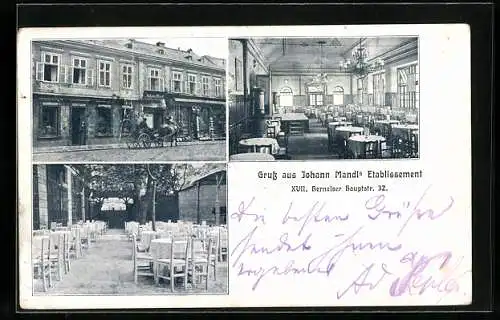 Gruß aus Johann Mandl's Etablissement
XVII. Hernalser Hauptstr. 32.
Die besten Grüße
sendet Ihnen
ergebenst
Ad.